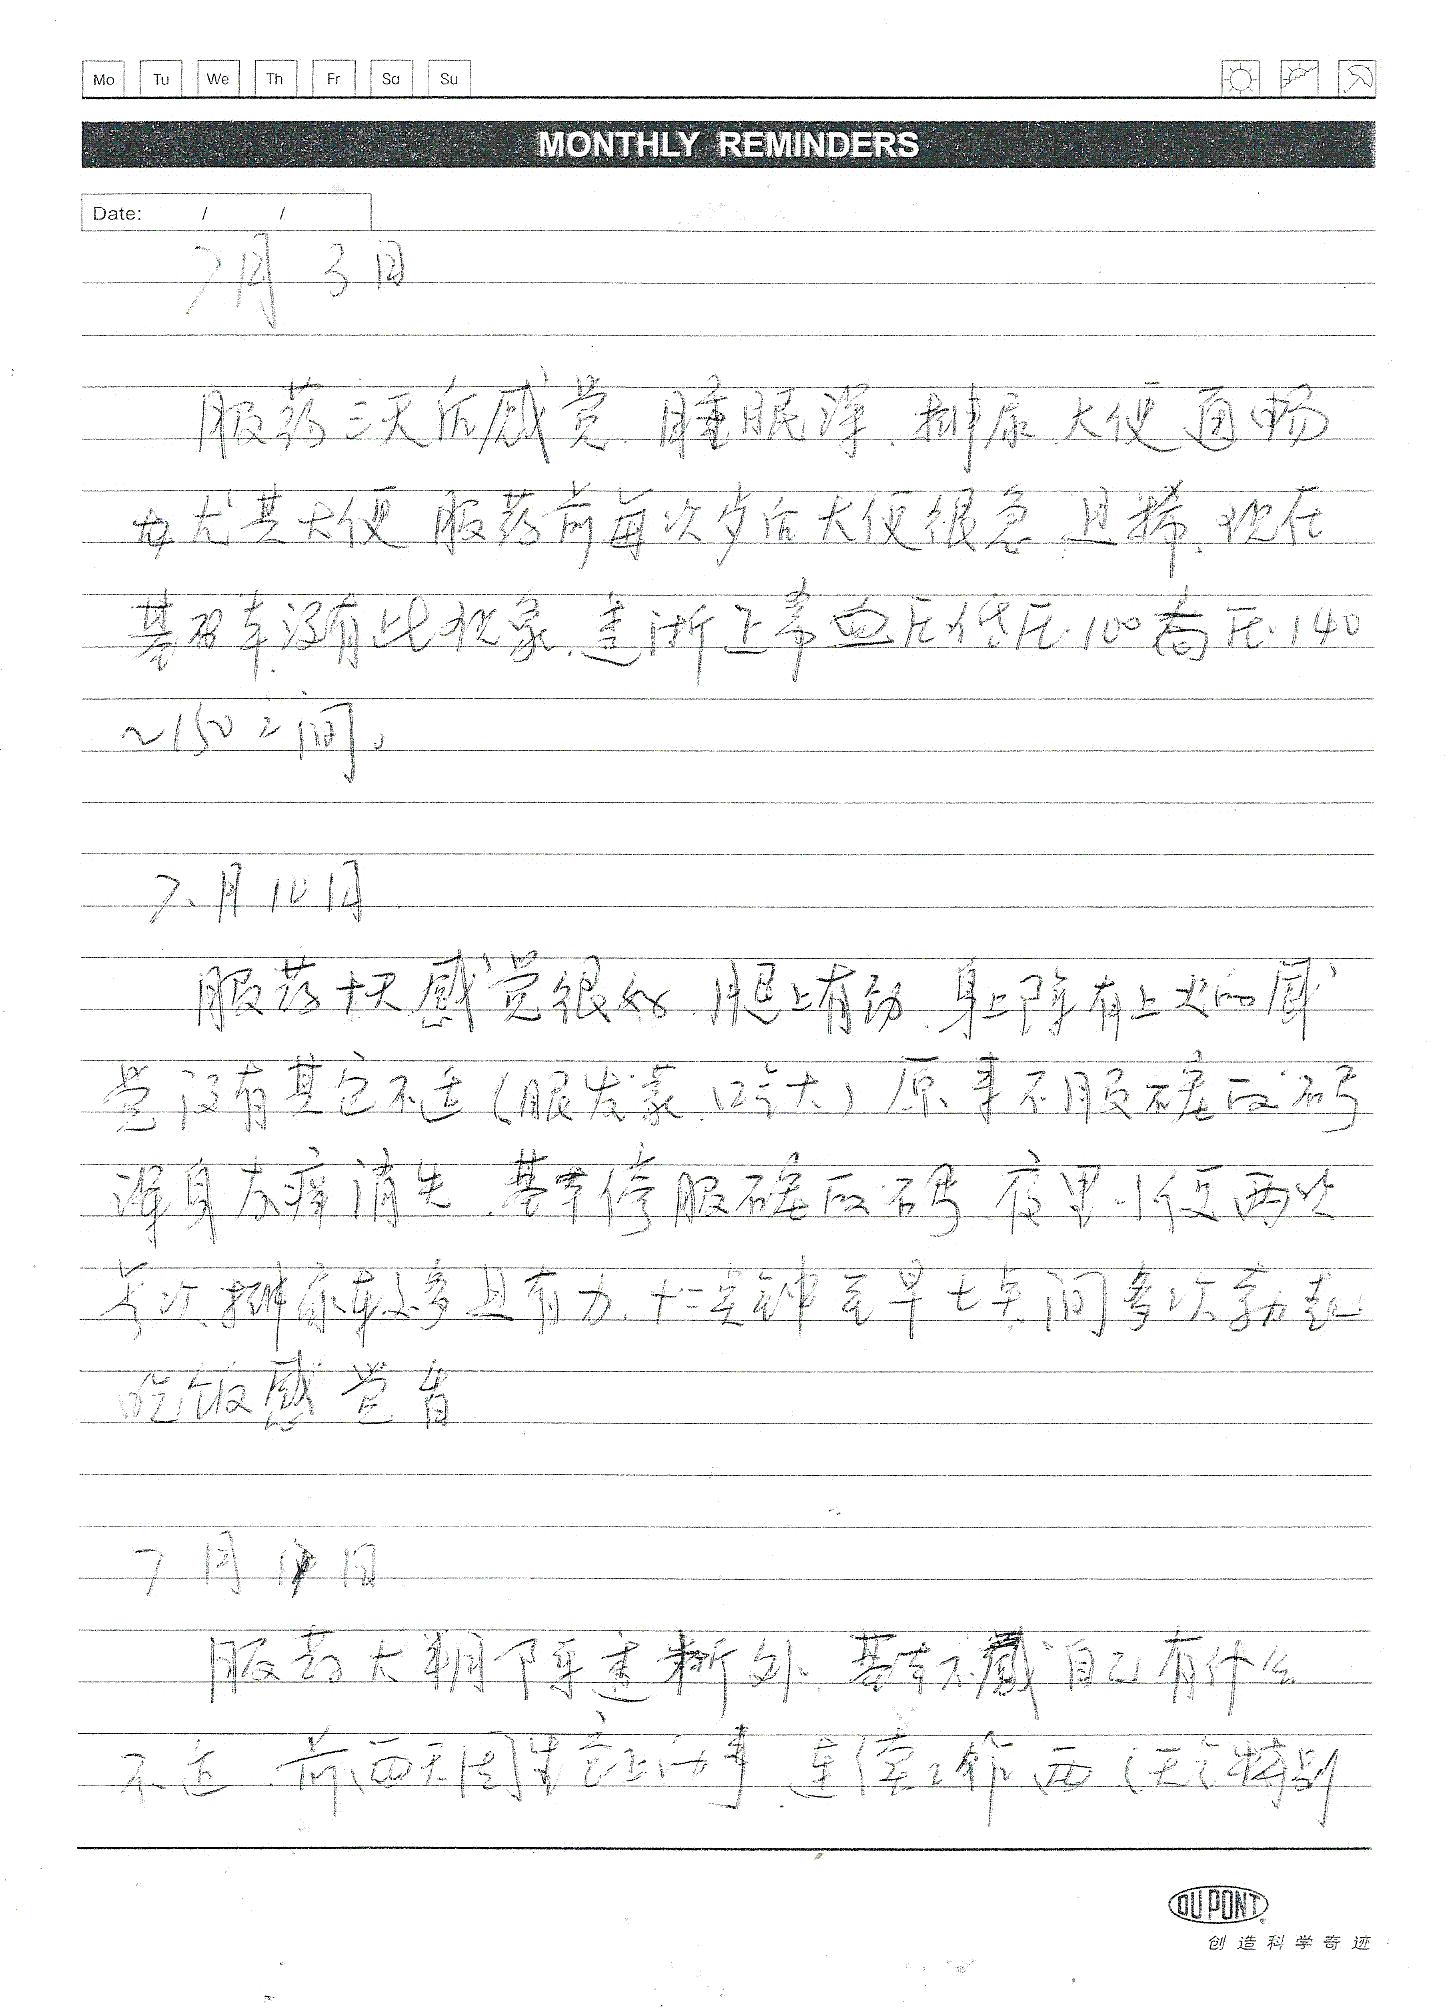 Mo Tu We Th Fr Sa Su
MONTHLY REMINDERS
Date: / /
7月3日
服药三天后感觉,睡眠深,排尿、大便通畅
尤其大便 服药前每次岁后大便很急,且稀,现在
基本没有此现象,逐渐正常血压低压100高压140
~150之间。
7、月10日
服药十天感觉很好,腿上有劲,身上除有上火的感
觉没有其它不适(眼发蒙、口气大)原来不服
浑身发痒消失,基本停服 夜里小便两次
每次排尿较多且有力,十二点钟至早七点间多次勃起
吃饭感觉香
7月 日
服药 外,基本不感自己有什么
不适 前两天因生意上的事,连续工作两(天)特别
DU PONT
创造科学奇迹